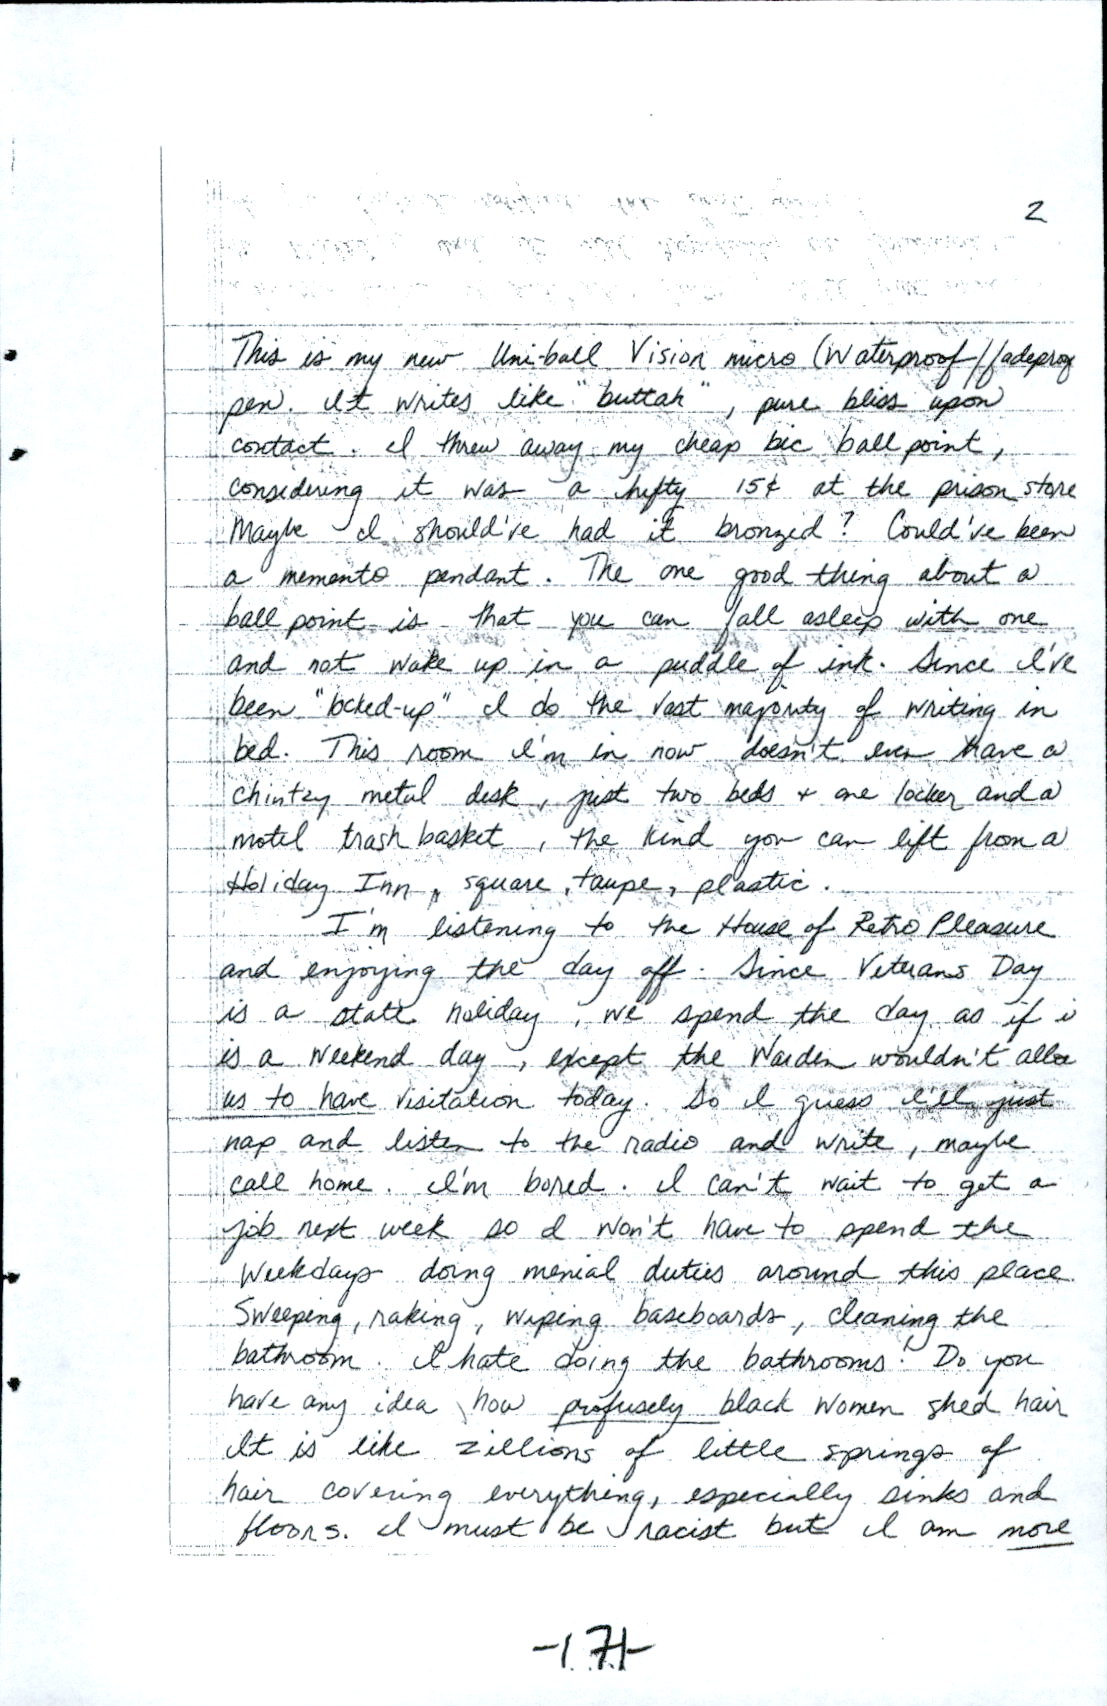 2
This is my new Uni-ball Vision micro (Waterproof/fadeproof
pen. It writes like "buttah", pure bliss upon
contact. I threw away my cheap bic ball point,
considering it was a hefty 15¢ at the prison store
Maybe I should've had it bronzed? Could've been
a memento pendant. The one good thing about a
ball point is that you can fall asleep with one
and not wake up in a puddle of ink. Since I've
been "locked-up" I do the vast majority of writing in
bed. This room I'm in now doesn't even have a
chintzy metal desk, just two beds + one locker and a
motel trash basket, the kind you can lift from a
Holiday Inn, square, taupe, plastic.
I'm listening to the House of Retro Pleasure
and enjoying the day off. Since Veterans Day
is a state holiday, we spend the day as if i
is a weekend day, except the Warden wouldn't allow
us to have visitation today. So I guess I'll just
nap and listen to the radio and write, maybe
call home. I'm bored. I can't wait to get a
job next week so I won't have to spend the
weekdays doing menial duties around this place.
Sweeping, raking, wiping baseboards, cleaning the
bathroom. I hate doing the bathrooms! Do you
have any idea how profusely black women shed hair
It is like zillions of little springs of
hair covering everything, especially sinks and
floors. I must be racist but I am more
-171-